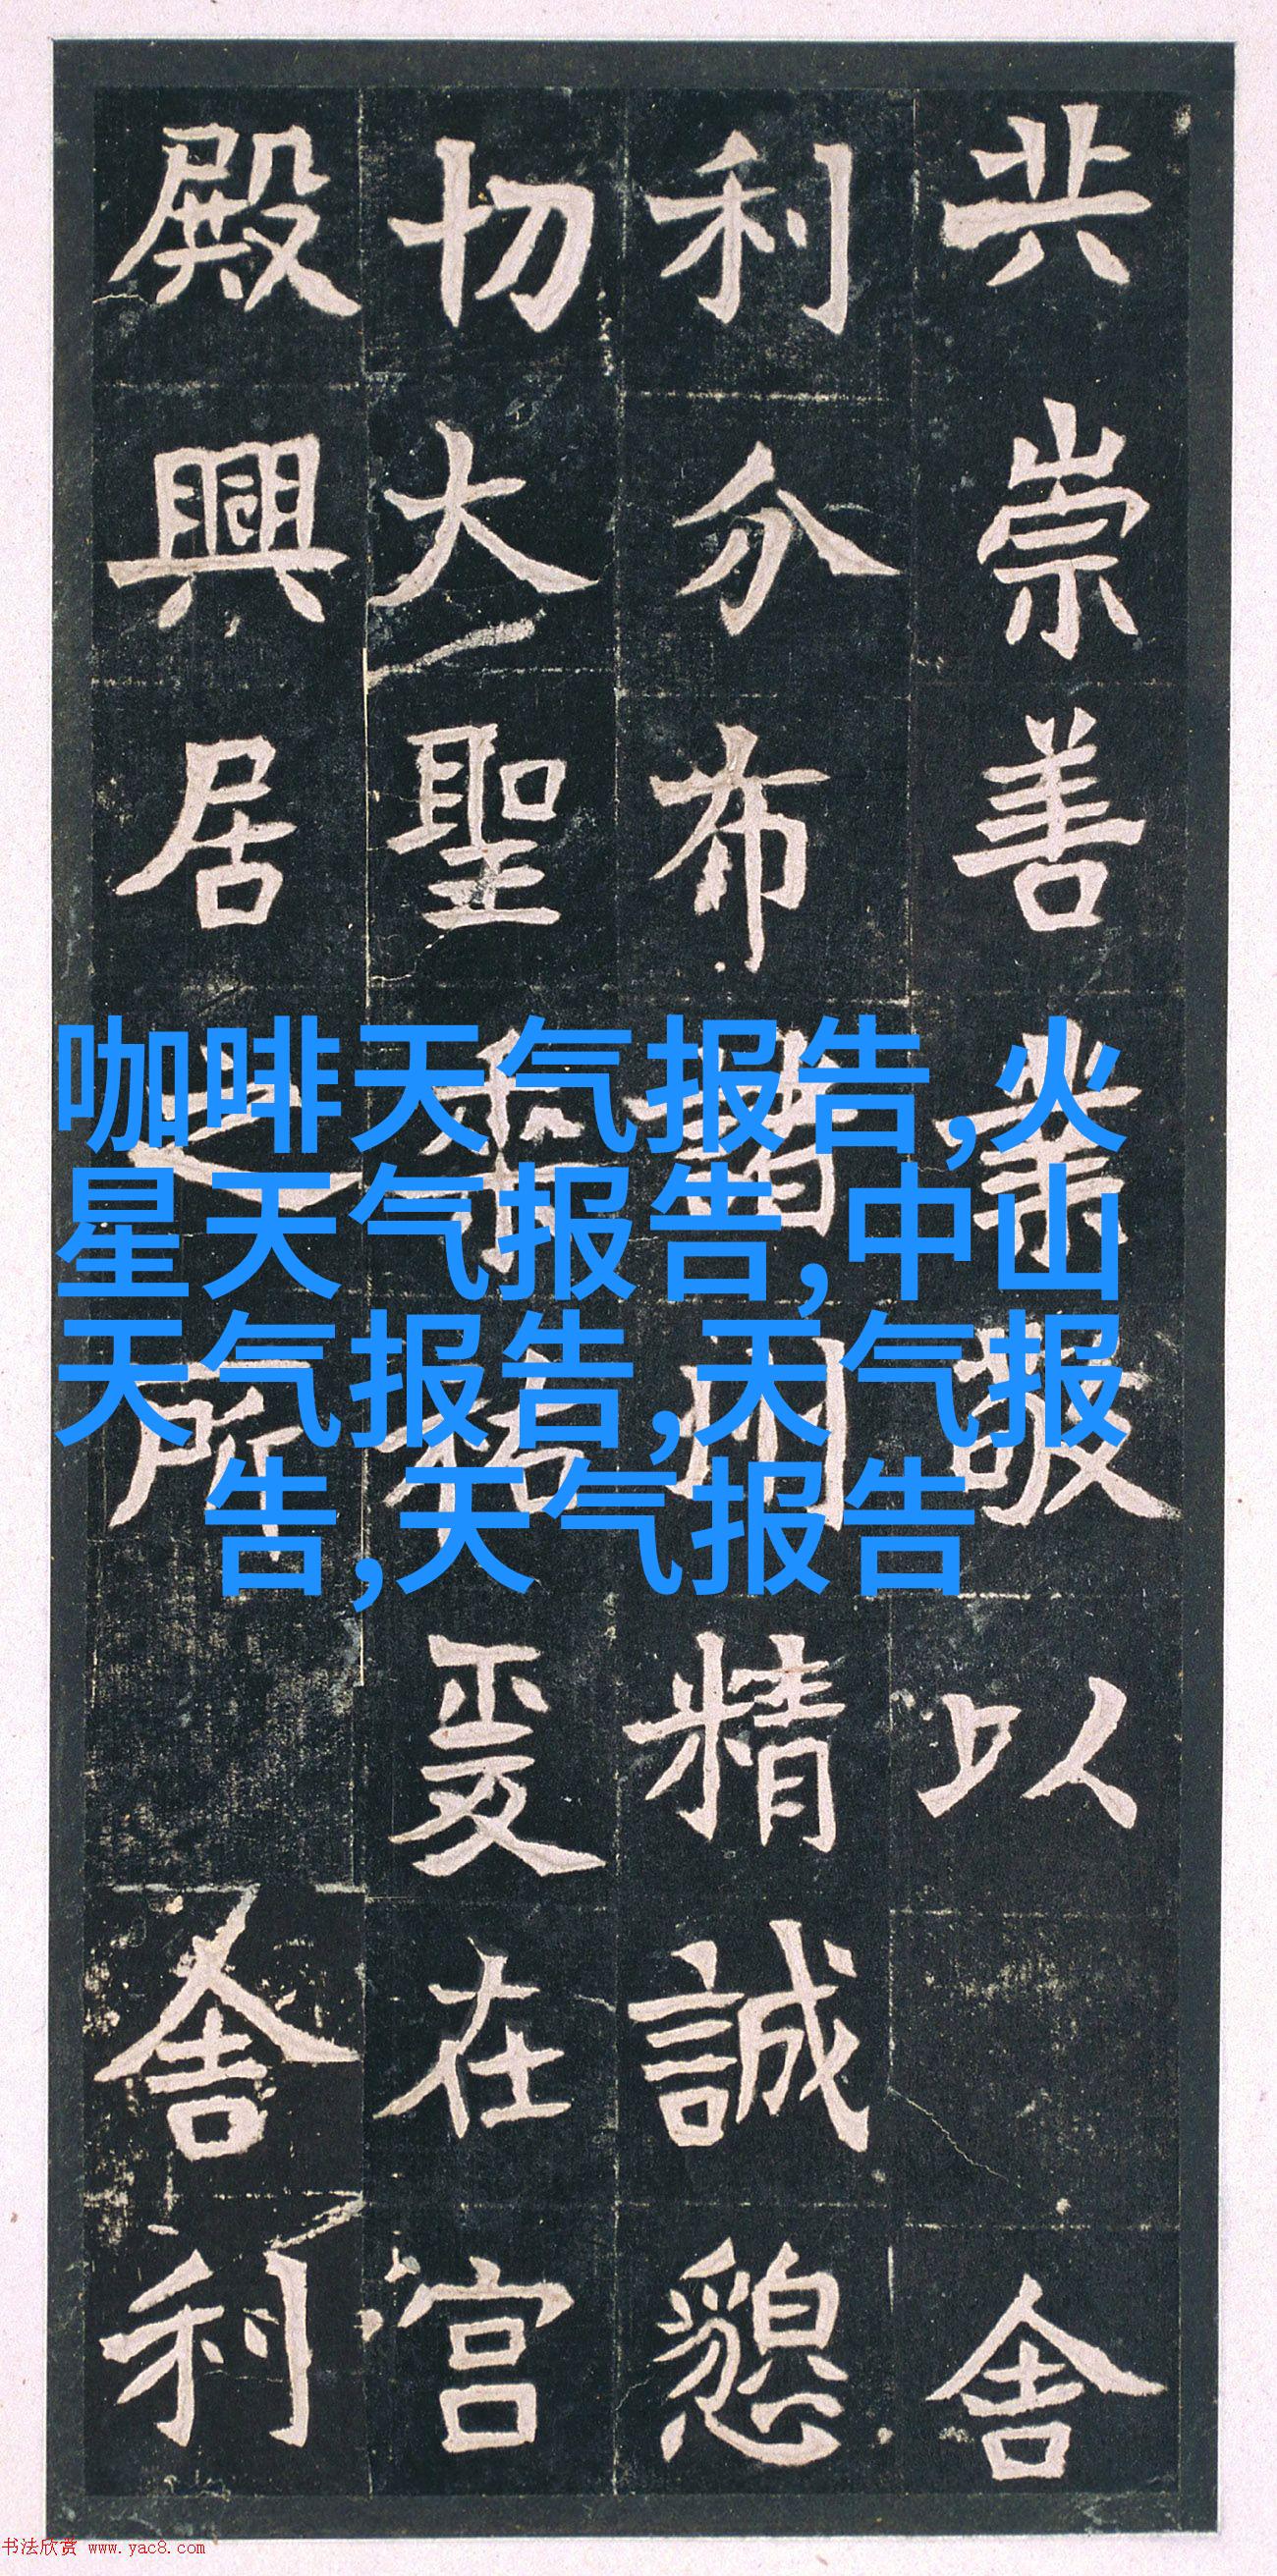 共崇善業敬以舍
利分布諸州精誠懇
切大聖垂祐爰在宮
殿興居之所舍利
咖啡天气报告,火
星天气报告,中山
天气报告,天气报
告,天气报告
书法欣赏 www.yac8.com